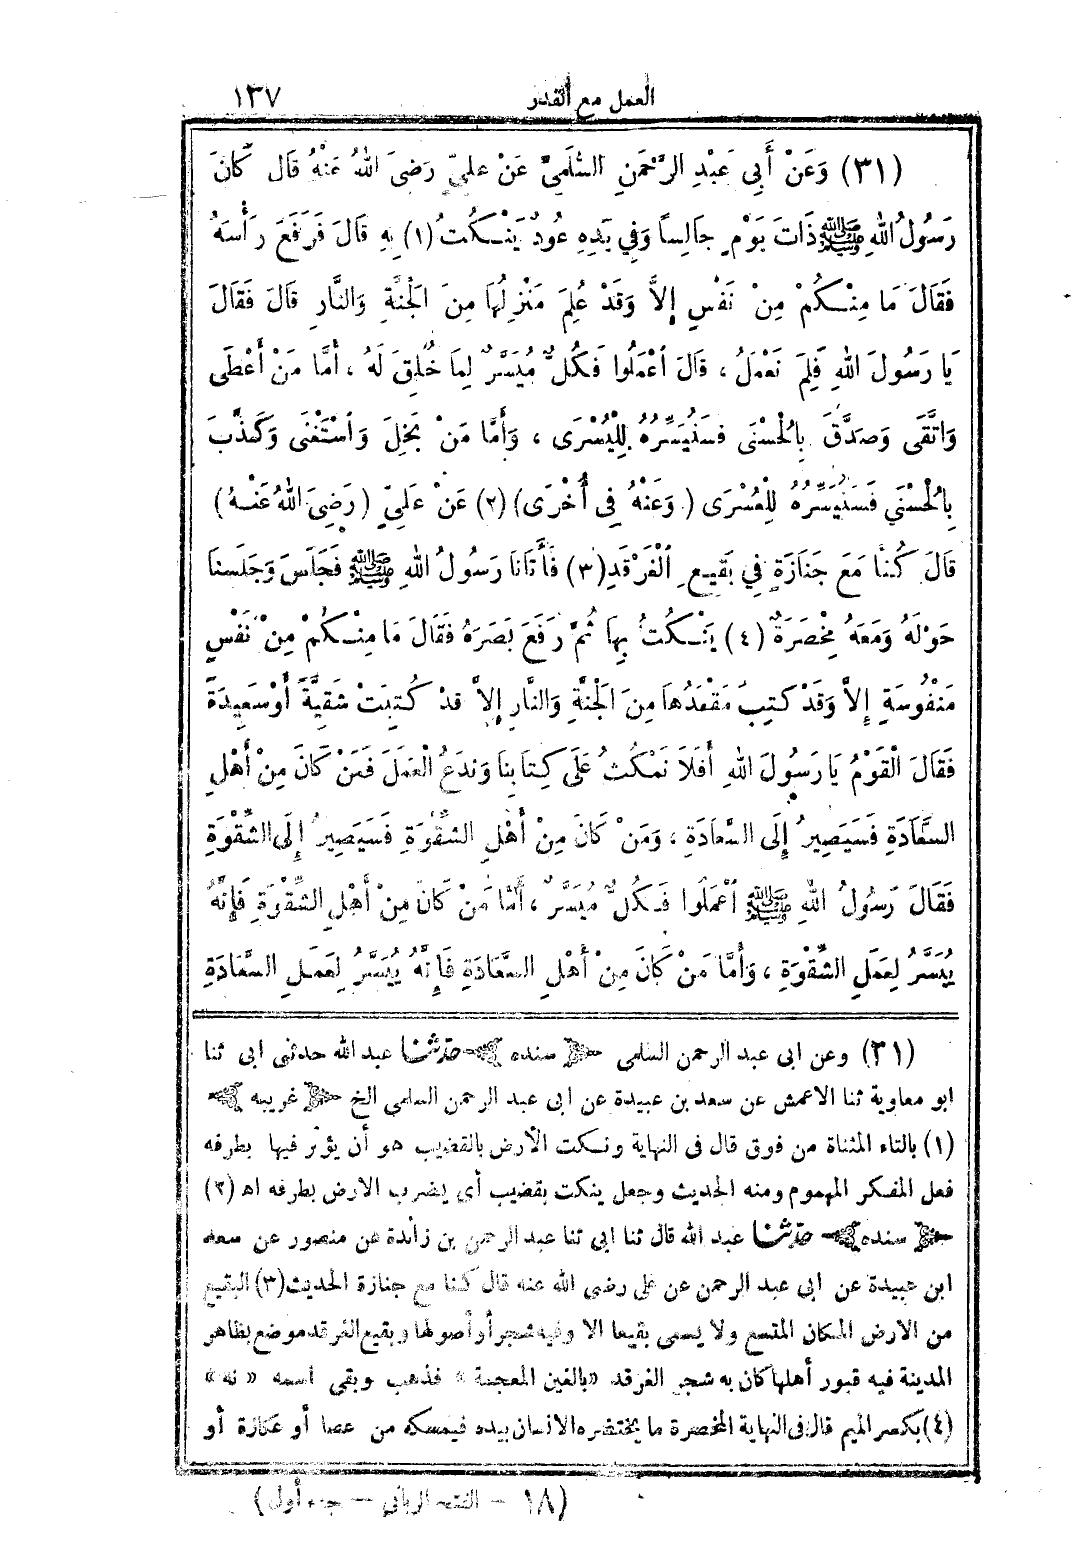 العمل مع القدر ١٣٧
(٣١) وَعَنْ أَبِي عَبْدِ الرَّحْمَنِ السُّلَمِيِّ عَنْ عَلِيٍّ رَضِيَ اللهُ عَنْهُ قَالَ كَانَ
رَسُولُ اللهِ ﷺ ذَاتَ يَوْمٍ جَالِسًا وَفِي يَدِهِ عُودٌ يَنْكُتُ (١) بِهِ قَالَ فَرَفَعَ رَأْسَهُ
فَقَالَ مَا مِنْكُمْ مِنْ نَفْسٍ إِلاَّ وَقَدْ عُلِمَ مَنْزِلُهَا مِنَ الْجَنَّةِ وَالنَّارِ قَالَ فَقَالَ
يَا رَسُولَ اللهِ فَلِمَ نَعْمَلُ ، قَالَ اعْمَلُوا فَكُلٌّ مُيَسَّرٌ لِمَا خُلِقَ لَهُ ، أَمَّا مَنْ أَعْطَى
وَاتَّقَى وَصَدَّقَ بِالْحُسْنَى فَسَنُيَسِّرُهُ لِلْيُسْرَى ، وَأَمَّا مَنْ بَخِلَ وَاسْتَغْنَى وَكَذَّبَ
بِالْحُسْنَى فَسَنُيَسِّرُهُ لِلْعُسْرَى (وَعَنْهُ فِي أُخْرَى) (٢) عَنْ عَلِيٍّ (رَضِيَ اللهُ عَنْهُ)
قَالَ كُنَّا مَعَ جَنَازَةٍ فِي بَقِيعِ الْغَرْقَدِ (٣) فَأَتَانَا رَسُولُ اللهِ ﷺ فَجَلَسَ وَجَلَسْنَا
حَوْلَهُ وَمَعَهُ مِخْصَرَةٌ (٤) يَنْكُتُ بِهَا ثُمَّ رَفَعَ بَصَرَهُ فَقَالَ مَا مِنْكُمْ مِنْ نَفْسٍ
مَنْفُوسَةٍ إِلاَّ وَقَدْ كُتِبَ مَقْعَدُهَا مِنَ الْجَنَّةِ وَالنَّارِ إِلاَّ قَدْ كُتِبَتْ شَقِيَّةً أَوْ سَعِيدَةً
فَقَالَ الْقَوْمُ يَا رَسُولَ اللهِ أَفَلَا نَمْكُثُ عَلَى كِتَابِنَا وَنَدَعُ الْعَمَلَ فَمَنْ كَانَ مِنْ أَهْلِ
السَّعَادَةِ فَسَيَصِيرُ إِلَى السَّعَادَةِ ، وَمَنْ كَانَ مِنْ أَهْلِ الشِّقْوَةِ فَسَيَصِيرُ إِلَى الشِّقْوَةِ
فَقَالَ رَسُولُ اللهِ ﷺ اعْمَلُوا فَكُلٌّ مُيَسَّرٌ ، أَمَّا مَنْ كَانَ مِنْ أَهْلِ الشِّقْوَةِ فَإِنَّهُ
يُيَسَّرُ لِعَمَلِ الشِّقْوَةِ ، وَأَمَّا مَنْ كَانَ مِنْ أَهْلِ السَّعَادَةِ فَإِنَّهُ يُيَسَّرُ لِعَمَلِ السَّعَادَةِ
(٣١) وعن ابى عبد الرحمن السلمى ﴿ سنده ﴾ حدثنا عبد الله حدثنى ابى ثنا
ابو معاوية ثنا الاعمش عن سعد بن عبيدة عن ابى عبد الرحمن السلمى الخ ﴿ غريبه ﴾
(١) بالتاء المثناة من فوق قال فى النهاية ونكت الأرض بالقضيب هو أن يؤثر فيها بطرفه
فعل المفكر المهموم ومنه الحديث وجعل ينكت بقضيب أى يضرب الارض بطرفه اه (٢)
﴿ سنده ﴾ حدثنا عبد الله قال ثنا ابى ثنا عبد الرحمن بن زائدة عن منصور عن سعد
ابن عبيدة عن ابى عبد الرحمن عن على رضى الله عنه قال كنا مع جنازة الحديث (٣) البقيع
من الارض المكان المتسع ولا يسمى بقيعا الا وفيه شجر أو أصولها وبقيع الغرقد موضع بظاهر
المدينة فيه قبور أهلها كان به شجر الغرقد «بالغين المعجمة» فذهب وبقى اسمه « نه »
(٤) بكسر الميم قال فى النهاية المخصرة ما يختصره الانسان بيده فيمسكه من عصا أو عكازة أو
(١٨ - الفتح الربانى - جزء أول)